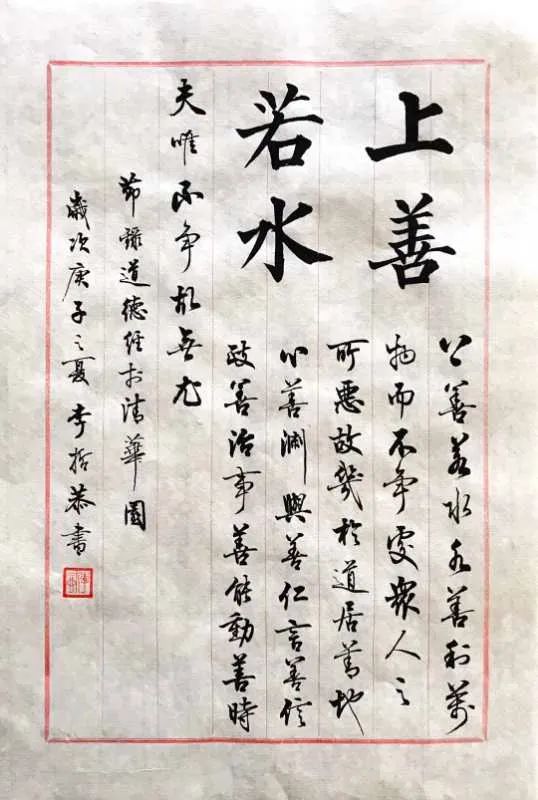 上善
若水
上善若水水善利萬
物而不争處衆人之
所惡故幾於道居善地
心善渊與善仁言善信
政善治事善能動善時
夫唯不争故無尤
節錄道德经於清華園
歲次庚子之夏李哲恭書